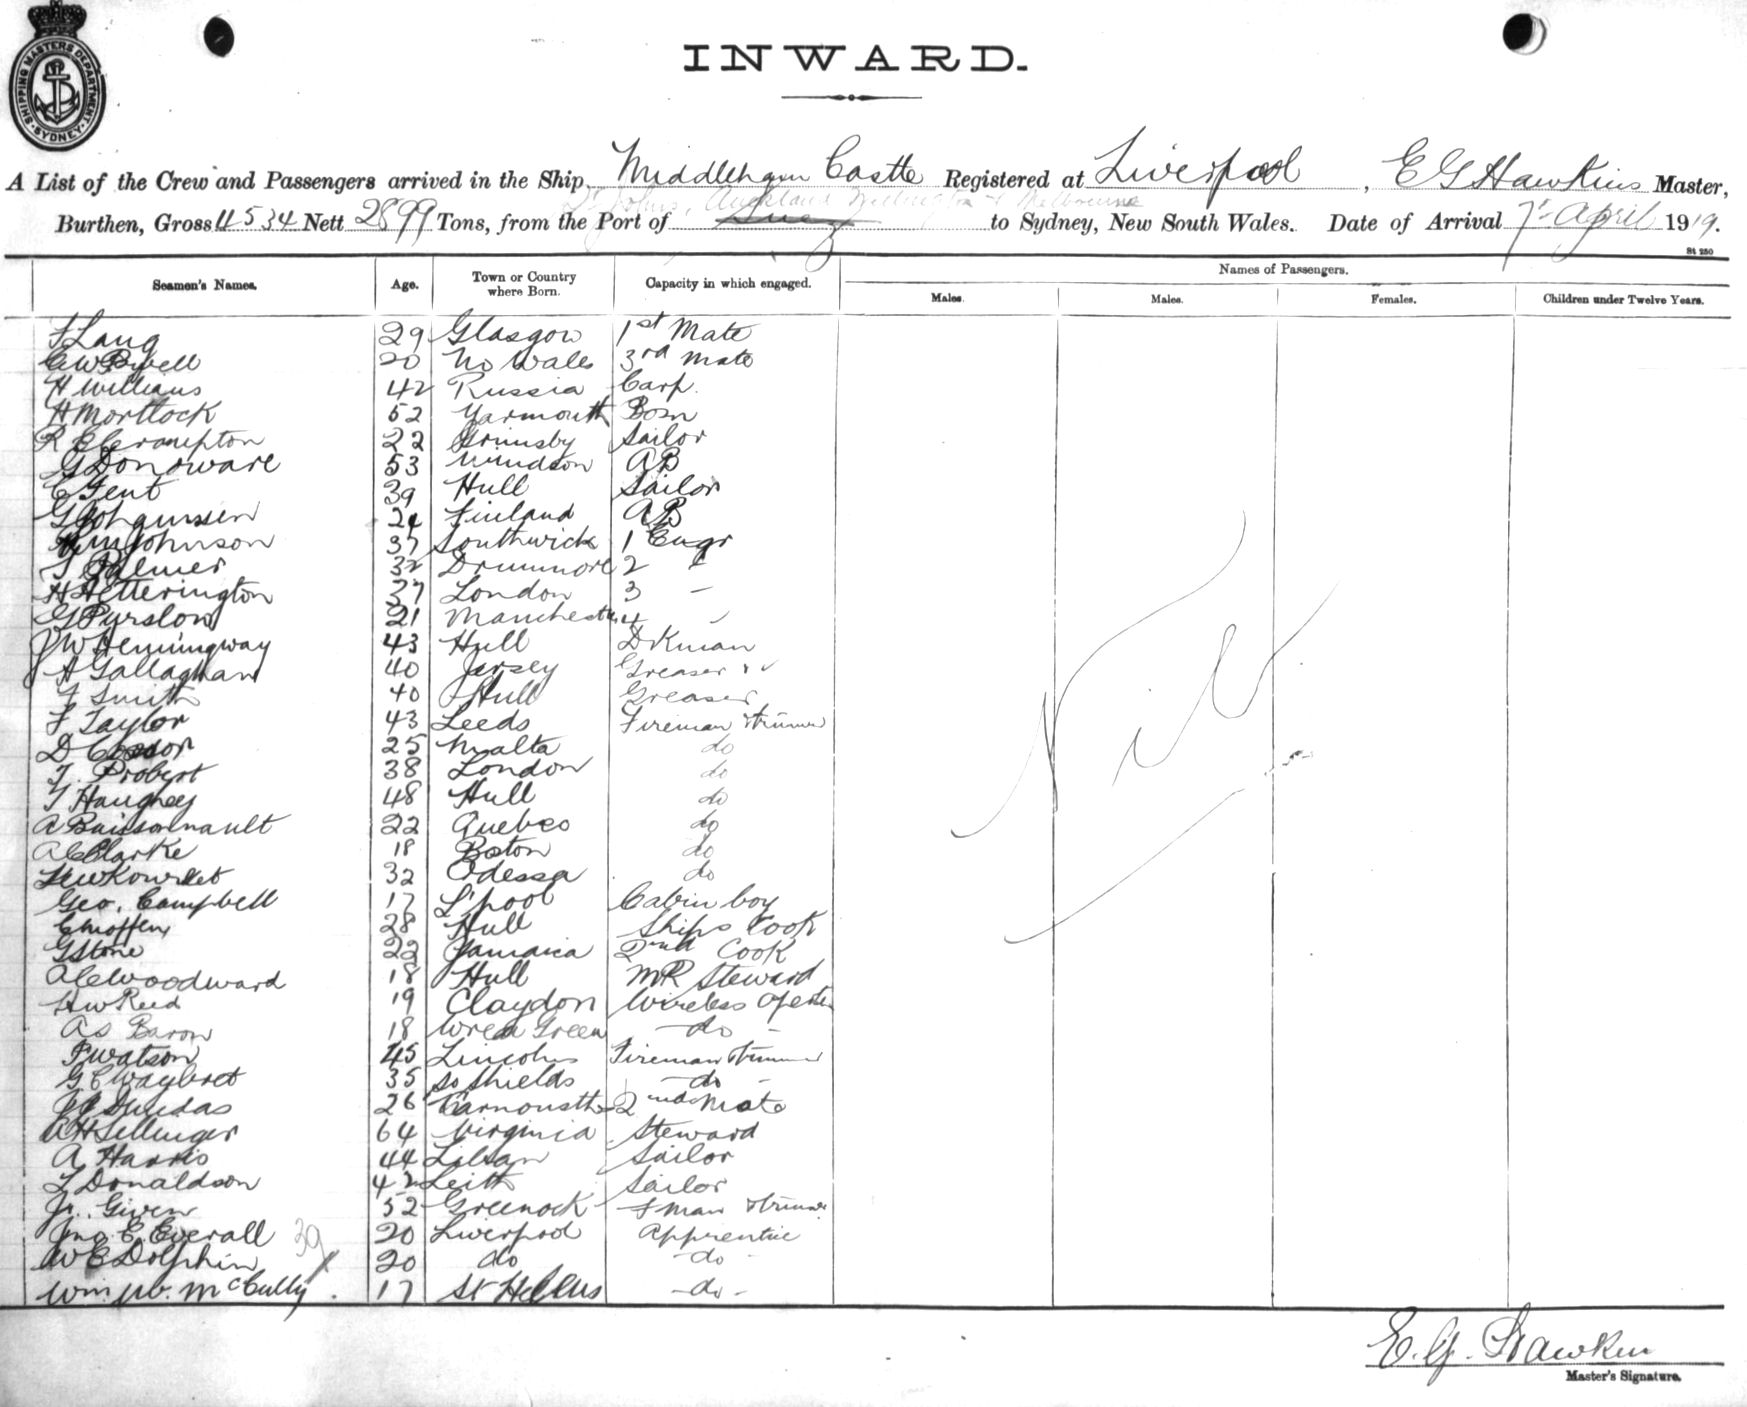 SHIPPING MASTERS DEPARTMENT SYDNEY
INWARD.
A List of the Crew and Passengers arrived in the Ship Middleham Castle Registered at Liverpool, E G Hawkins Master,
St Johns, Auckland Wellington & Melbourne
Burthen, Gross 4534 Nett 2899 Tons, from the Port of to Sydney, New South Wales. Date of Arrival 7th April 1919.
St 250
Seamen's Names. Age. Town or Country where Born. Capacity in which engaged. Names of Passengers.
Males. Males. Females. Children under Twelve Years.
F Lang 29 Glasgow 1st Mate
20 No Wales 3rd Mate
H Williams 42 Russia Carp.
H Mortlock 52 Yarmouth Bosn
R E Crampton 22 Grimsby Sailor
G Donoware 53 Windsor AB
E Gent 39 Hull Sailor
G Johgunssen 24 Finland AB
Wm Johnson 37 Southwick 1 Engr
T Palmer 32 Drummore 2 "
H Hetterington 37 London 3 -
G Purslow 21 Manchester 4
J W Hemingway 43 Hull DKman
A Gallaghan 40 Jersey Greaser
F Smith 40 Hull Greaser
F Taylor 43 Leeds Fireman & trimmer
D 25 Malta do
T. Probert 38 London do
T Haughey 48 Hull do
A Buissonnault 22 Quebec do
A C Clarke 18 Boston do
32 Odessa do
Geo. Campbell 17 L'pool Cabin boy
28 Hull Ships Cook
G Stone 22 Jamaica 2nd Cook
A C Woodward 18 Hull MR Steward
H W Reed 19 Claydon Wireless
A S Baron 18 Wrea Green - do -
F Watson 45 Lincoln Fireman & trimmer
G C Waybret 35 So Shields - do -
J J Dundas 26 Carnousth 2nd Mate
A H Sellinger 64 Virginia Steward
A Harris 44 Libsan Sailor
T Donaldson 42 Leith Sailor
Jr. Given 52 Greenock F man & trimmer
Jno E. Everall 20 Liverpool Apprentice
39
W E Dolphin 20 do - do -
Wm W. McCully 17 St Helens - do -
Nil
E. G. Hawkins
Master's Signature.